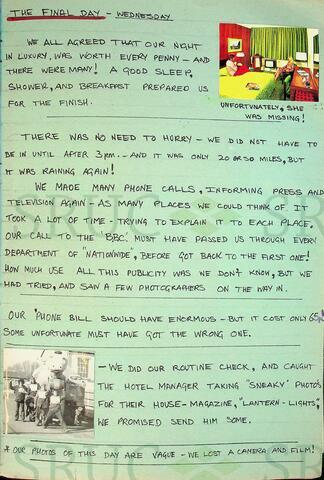 THE FINAL DAY - WEDNESDAY
WE ALL AGREED THAT OUR NIGHT
IN LUXURY, WAS WORTH EVERY PENNY - AND
THERE WERE MANY! A GOOD SLEEP,
SHOWER, AND BREAKFAST PREPARED US
FOR THE FINISH.
UNFORTUNATELY, SHE
WAS MISSING!
THERE WAS NO NEED TO HURRY - WE DID NOT HAVE TO
BE IN UNTIL AFTER 3PM. - AND IT WAS ONLY 20 OR 30 MILES, BUT
IT WAS RAINING AGAIN!
WE MADE MANY PHONE CALLS, INFORMING PRESS AND
TELEVISION AGAIN - AS MANY PLACES WE COULD THINK OF. IT
TOOK A LOT OF TIME - TRYING TO EXPLAIN IT TO EACH PLACE.
OUR CALL TO THE 'BBC' MUST HAVE PASSED US THROUGH EVERY
DEPARTMENT OF "NATIONWIDE", BEFORE GOT BACK TO THE FIRST ONE!
HOW MUCH USE ALL THIS PUBLICITY WAS WE DON'T KNOW, BUT WE
HAD TRIED, AND SAW A FEW PHOTOGRAPHERS ON THE WAY IN.
OUR 'PHONE BILL SHOULD HAVE ENORMOUS - BUT IT COST ONLY 65P
SOME UNFORTUNATE MUST HAVE GOT THE WRONG ONE.
- WE DID OUR ROUTINE CHECK, AND CAUGHT
THE HOTEL MANAGER TAKING "SNEAKY" PHOTO'S
FOR THEIR HOUSE-MAGAZINE, "LANTERN-LIGHTS",
WE PROMISED SEND HIM SOME.
* OUR PHOTOS OF THIS DAY ARE VAGUE - WE LOST A CAMERA AND FILM!
SRUC